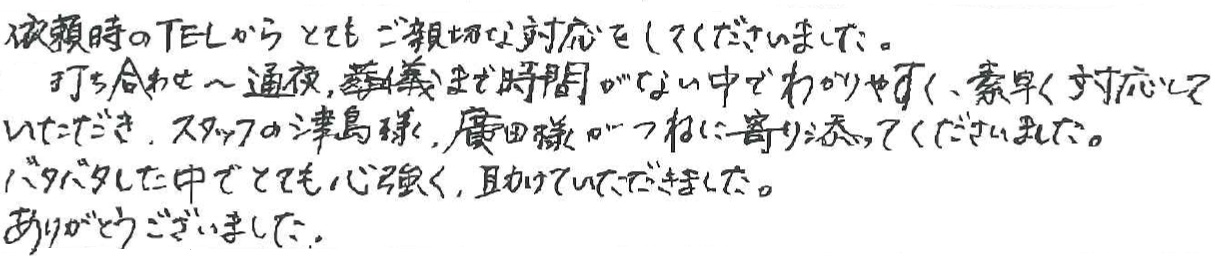 依頼時のTELからとてもご親切な対応をしてくださいました。
打ち合わせ～通夜、葬儀まで時間がない中でわかりやすく、素早く対応して
いただき、スタッフの津島様、廣田様がつねに寄り添ってくださいました。
バタバタした中でとても心強く、助けていただきました。
ありがとうございました。